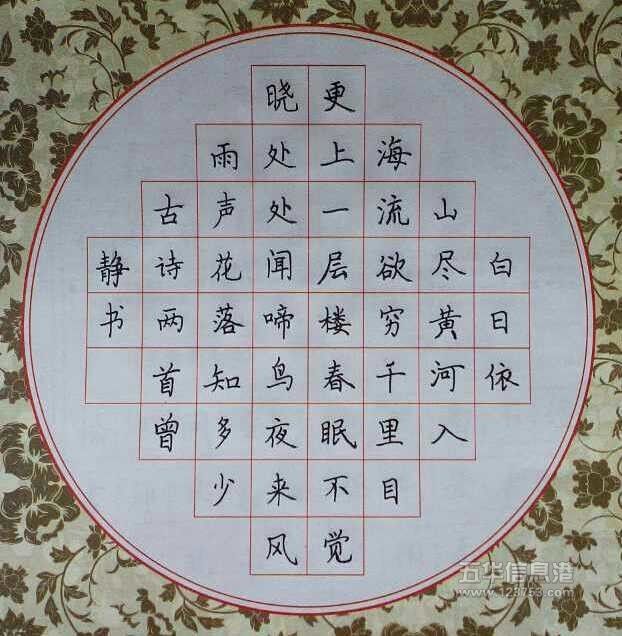 白日依
山尽黄河入
海流欲穷千里目
更上一层楼春眠不觉
晓处处闻啼鸟夜来风
雨声花落知多少
古诗两首曾
静书
五华信息港
www.123753.com